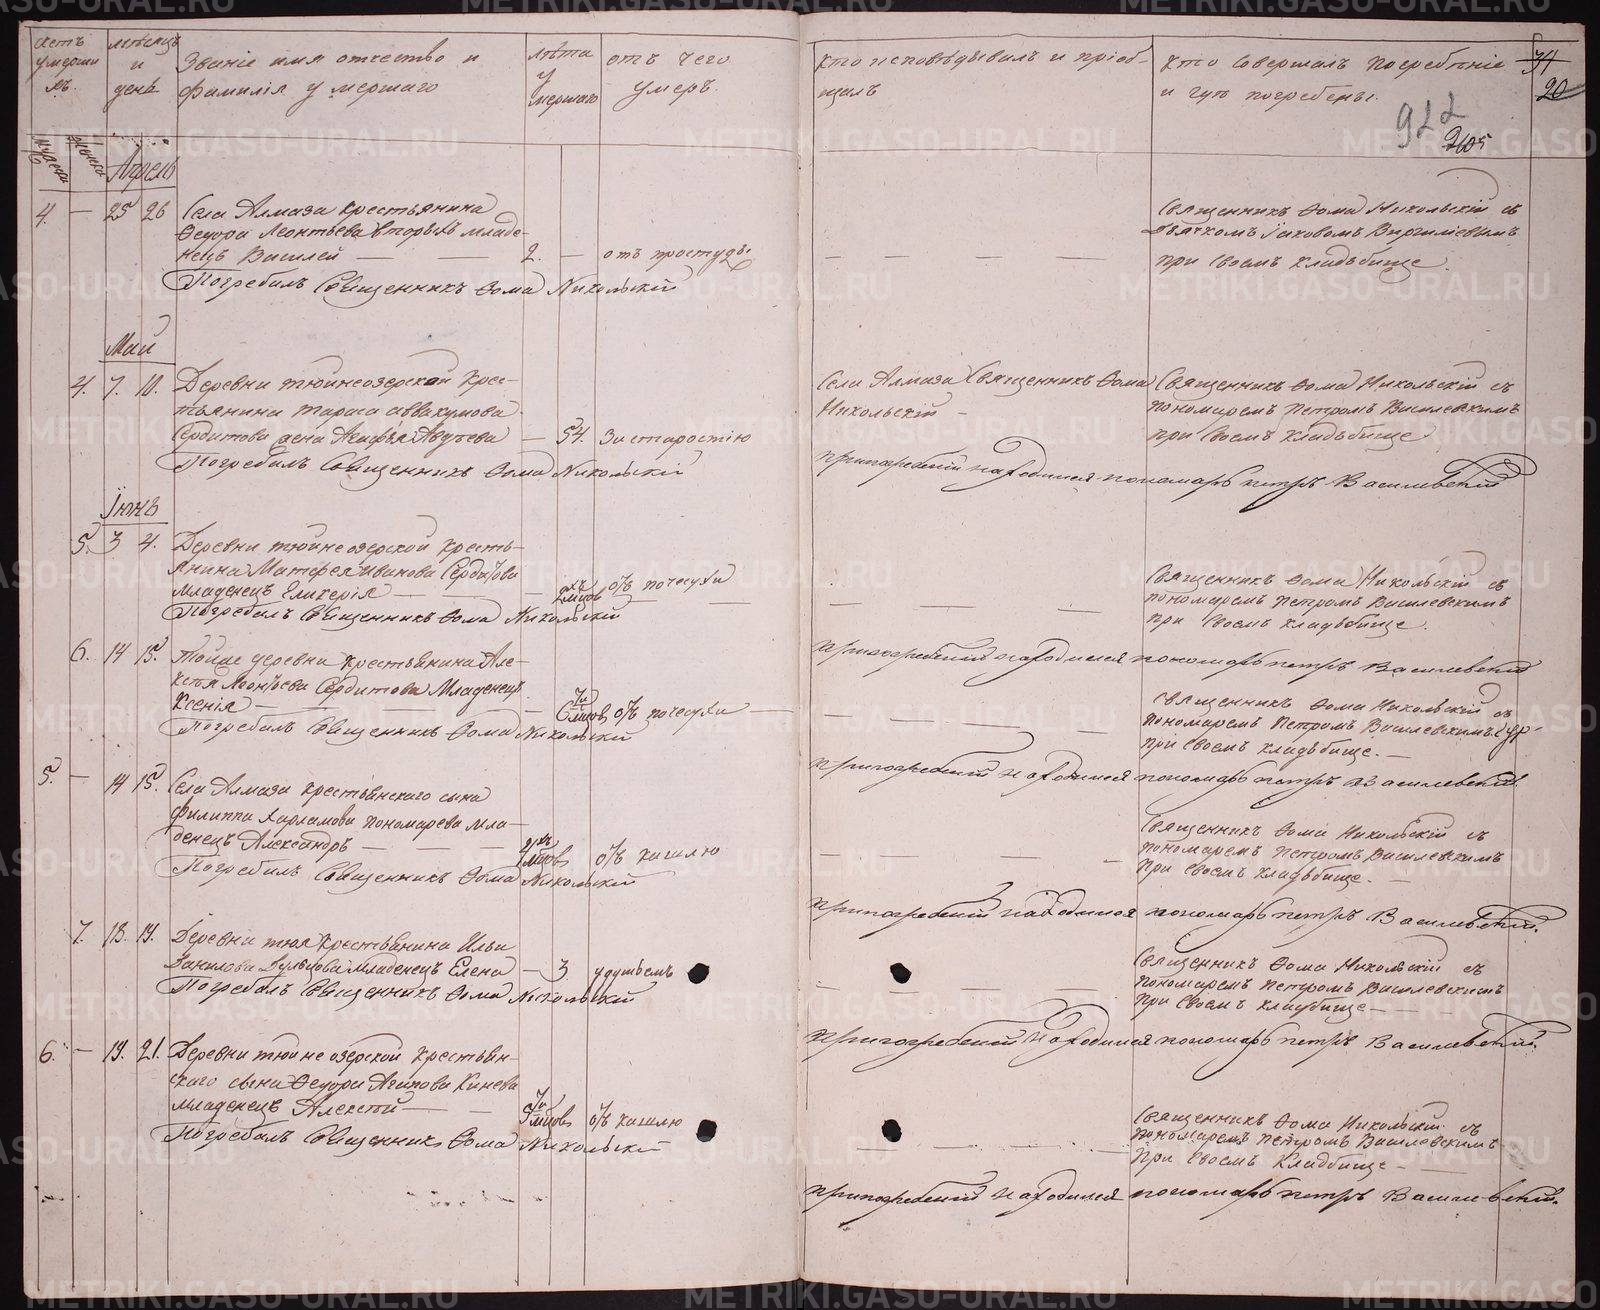 счетъ умершихъ
мѣсяцъ и день
Званіе имя отчество и фамилія умершаго
лѣта умершаго
отъ чего умеръ.
кто исповѣдывалъ и пріобщалъ
кто совершалъ погребѣніе и гдѣ погребены.
34
20
922
205
Апрель
4. — 25 26 Села Алмаза крестьянина
Ѳедора Леонтьева Вторыхъ младе-
нецъ Василей — — 2. — отъ простуды
Погребалъ Священникъ Ѳома Никольскій
Священникъ Ѳома Никольскій съ
дьячкомъ Іаковомъ
при своемъ кладьбище
Май
4. 7. 10. Деревни тюинеозерской крес-
тьянина тараса аввакумова
Сердитова жена Агафья Авдѣева — 54. за старостію
Погребалъ Священникъ Ѳома Никольскій
Села Алмаза Священникъ Ѳома
Никольскій —
Священникъ Ѳома Никольскій съ
пономаремъ Петромъ Василевскимъ
при своемъ кладьбище
при погребеніи находился пономарь петръ Василевскій
Іюнь
5. 3 4. Деревни тюинеозерской кресть-
янина Матфея иванова Сердитова
младенецъ Гликерія — — 2хъ мцовъ отъ почесухи
Погребалъ Священникъ Ѳома Никольскій
Священникъ Ѳома Никольскій съ
пономаремъ Петромъ Василевскимъ
при своемъ кладьбище.
при погребеніи находился пономарь петръ Василевскій
6. 14 15. тойже деревни крестьянина Але-
ксѣя Леонтьева Сердитова Младенецъ
Ксенія — — 6ти мцовъ отъ почесухи
Погребалъ Священникъ Ѳома Никольскій
Священникъ Ѳома Никольскій съ
пономаремъ Петромъ Василевскимъ
при своемъ кладьбище. —
при погребеніи находился пономарь петръ Василевскій.
5. — 14 15. Села Алмаза крестьянскаго сына
филиппа Харламова пономарева мла-
денецъ Александръ — — 4хъ мцовъ отъ кашлю
Погребалъ Священникъ Ѳома Никольскій
Священникъ Ѳома Никольскій съ
пономаремъ Петромъ Василевскимъ
при своемъ кладьбище. —
при погребеніи находился пономарь петръ Василевскій.
7. 18. 19. Деревни тюя крестьянина Ильи
Данилова младенецъ Елена — 3 удушьемъ
Погребалъ Священникъ Ѳома Никольскій
Священникъ Ѳома Никольскій съ
пономаремъ Петромъ Василевскимъ
при своемъ кладбище —
при погребеніи находился пономарь петръ Василевскій.
6. — 19. 21. Деревни тюинеозерской крестьян-
скаго сына Ѳедора Кинева
младенецъ Алексѣй — — мцовъ отъ кашлю
Погребалъ Священникъ Ѳома Никольскій
Священникъ Ѳома Никольскій съ
пономаремъ Петромъ Василевскимъ
при своемъ Кладбище —
при погребеніи находился пономарь петръ Василевскій.
METRIKI.GASO-URAL.RU